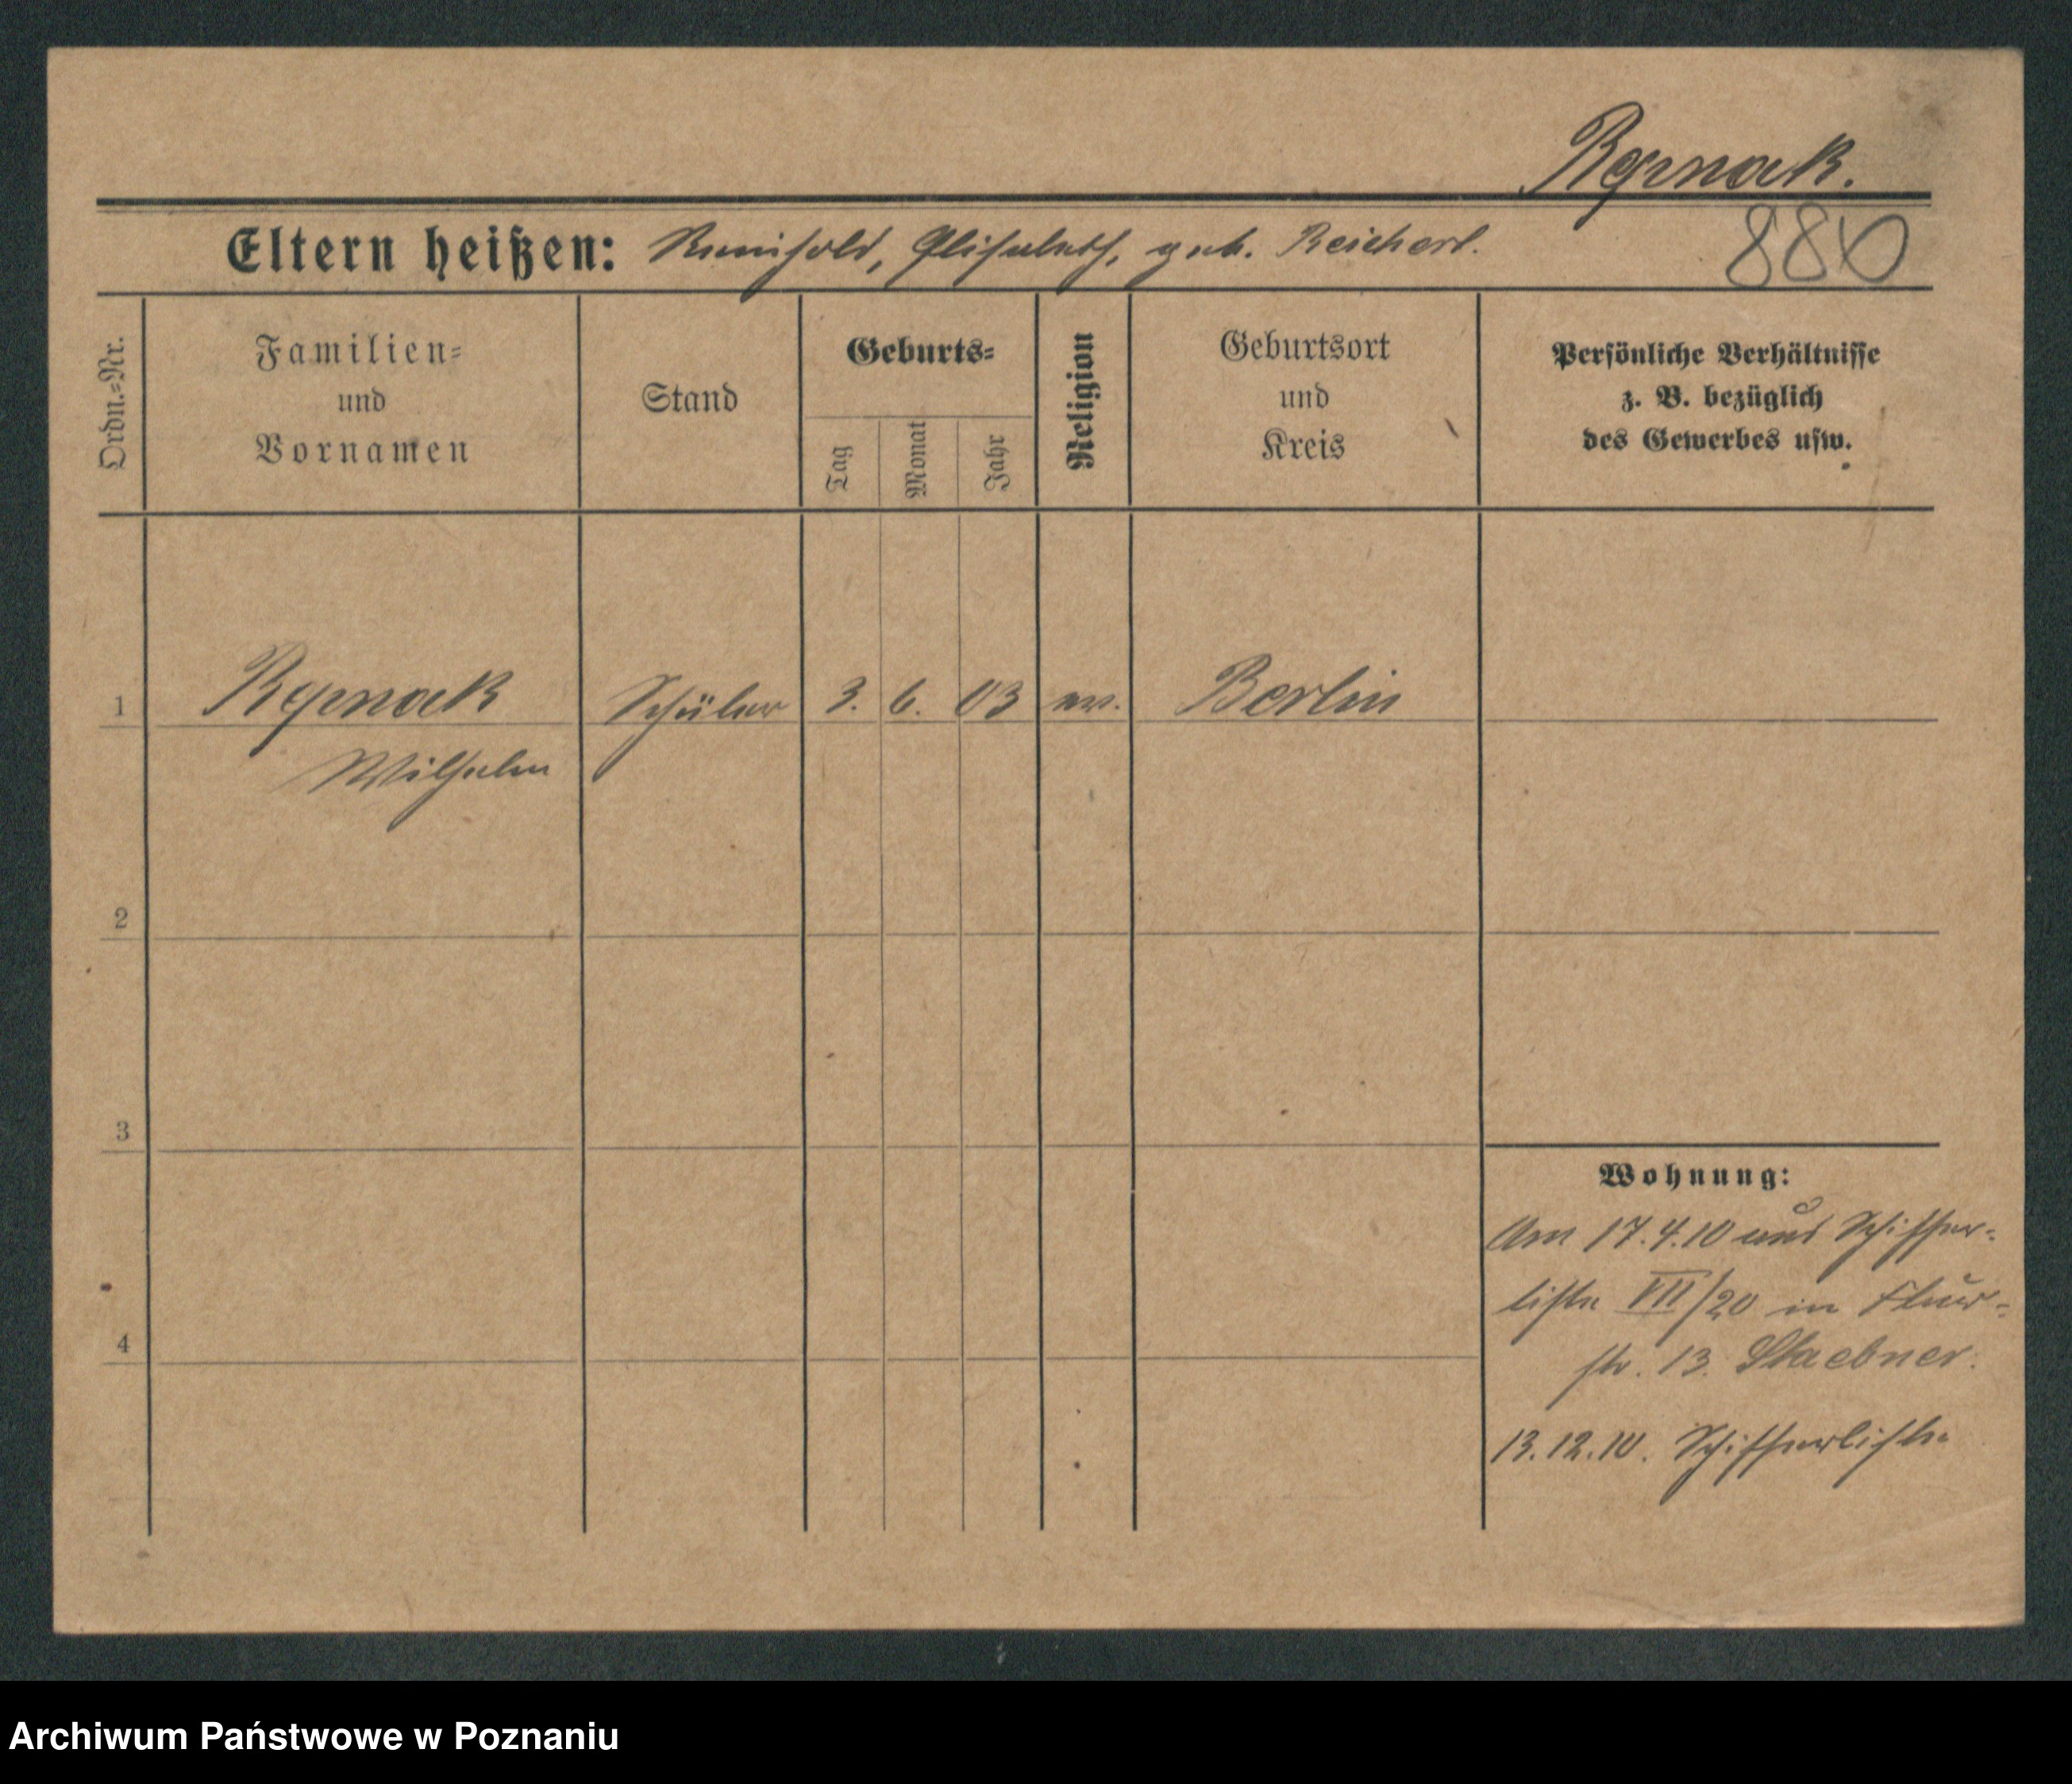 Repnack.
Eltern heißen: Reinhold, Elisabeth, geb. Reichert.
880
Ordn.=Nr.
Familien=
und
Vornamen
Stand
Geburts=
Tag
Monat
Jahr
Religion
Geburtsort
und
Kreis
Persönliche Verhältnisse
z. B. bezüglich
des Gewerbes usw.
1 Repnack Schüler 3. 6. 03 ev. Berlin
Wilhelm
2
3
4
Wohnung:
Am 17.4.10 aus Schiffer-
liste VII/20 in Flur-
str. 13. Staebner.
13.12.10. Schifferliste
Archiwum Państwowe w Poznaniu